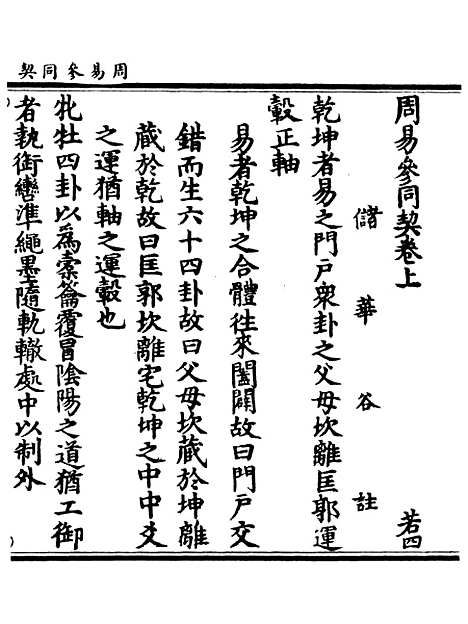 周易參同契
周易參同契卷上
若四
儲華谷註
乾坤者易之門戶衆卦之父母坎離匡郭運
轂正軸
易者乾坤之合體往來闔闢故曰門戶交
錯而生六十四卦故曰父母坎藏於坤離
藏於乾故曰匡郭坎離宅乾坤之中中爻
之運猶軸之運轂也
牝牡四卦以爲槖籥覆冒陰陽之道猶工御
者執銜轡準繩墨隨軌轍處中以制外